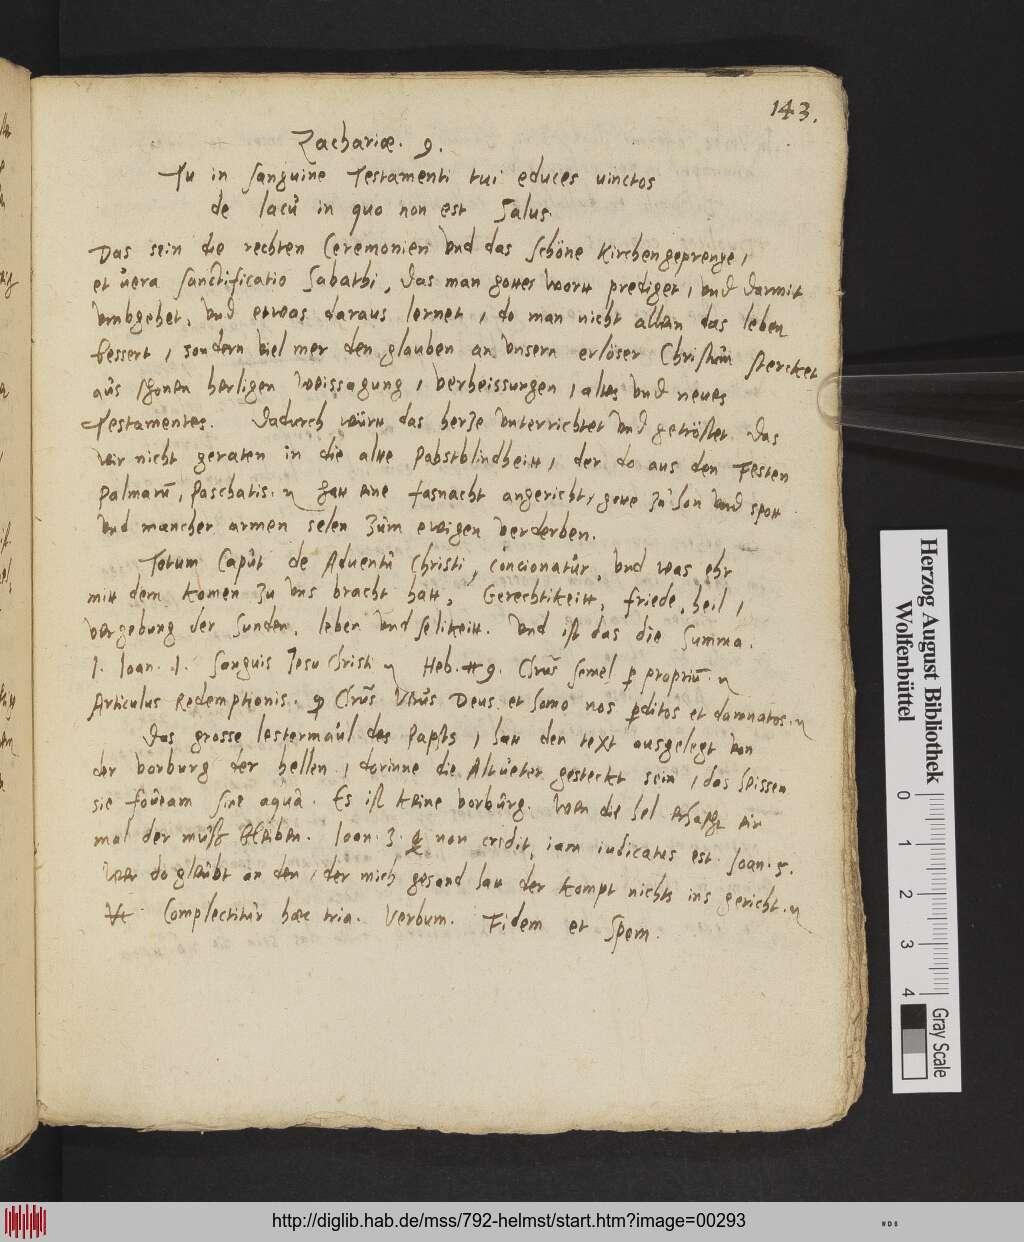 143.
Zachariæ. 9.
Tu in sanguine Testamenti tui educes uinctos
de laců in quo non est Salus
Das sein die rechten Ceremonien vnd das schöne Kirchengeprenge,
et ůera sanctificatio Sabathi, das man gottes wortt prediget, vnd darmit
vmbgehet, vnd etwas daraus lernet, do man nicht allein das leben
bessert, sondern viel mer den glauben an vnsern erlöser Christům stercket
aůs schonen herligen weissagung, verheissungen, altes vnd neues
Testamentes. Dadurch württ das herze vnterrichtet vnd getröstet das
wir nicht geraten in die alte Pabstblindheitt, der do aus den Festen
Palmarū, Paschatis. hatt eine fasnacht angericht, gotte zů hon vnd spott
vnd mancher armen selen zům ewigen verderben.
Totum Capůt de Aduentů Christi, concionatůr, vnd was ehr
mitt dem komen zu vns bracht hatt, Gerechtikeitt, friede, heil,
vergebung der sunden, leben vnd selikeitt. Vnd ist das die Summa.
1. Ioan. 1. Sanguis Jesu Christi Heb. 9. Chrūs semel p propriū.
Articulus Redemptionis. Chrūs Verůs Deus et homo nos perditos et damnatos.
Das grosse lestermaůl des Papsts, hatt den text ausgelegt von
der vorburg der hellen, dorinne die Altůeter gesteckt sein, das heissen
sie foůeam sine aquâ. Es ist keine vorbůrg. Wen die hel ein
mal der můß bleiben. Ioan. 3. Q non credit, iam iudicatus est. Ioan. 5.
Wer do glaůbt an den, der mich gesand hatt der kompt nichts ins gericht.
Complectitůr hæc tria. Verbum. Fidem et Spem.
Herzog August Bibliothek
Wolfenbüttel
0 1 2 3 4
Gray Scale
http://diglib.hab.de/mss/792-helmst/start.htm?image=00293